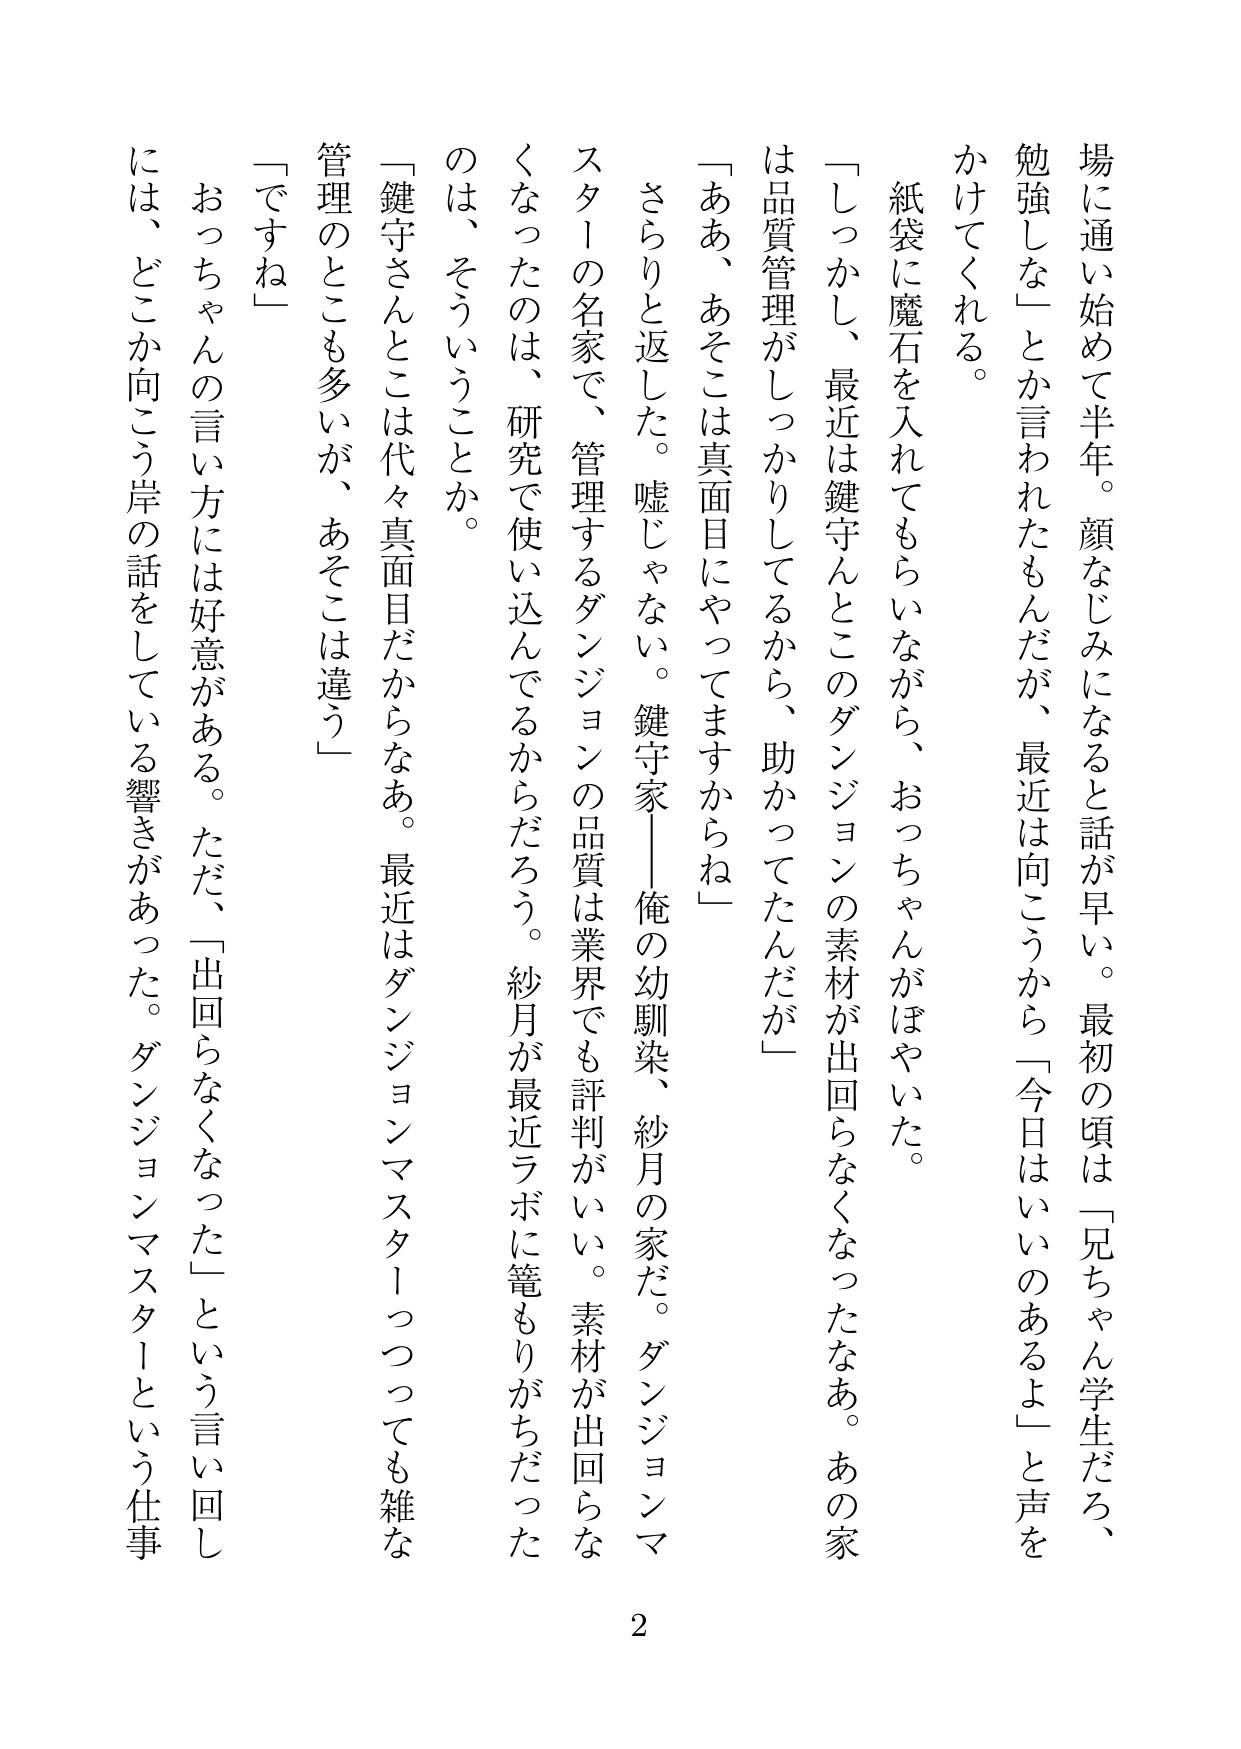 場に通い始めて半年。顔なじみになると話が早い。最初の頃は「兄ちゃん学生だろ、
勉強しな」とか言われたもんだが、最近は向こうから「今日はいいのあるよ」と声を
かけてくれる。
　紙袋に魔石を入れてもらいながら、おっちゃんがぼやいた。
「しっかし、最近は鍵守んとこのダンジョンの素材が出回らなくなったなあ。あの家
は品質管理がしっかりしてるから、助かってたんだが」
「ああ、あそこは真面目にやってますからね」
　さらりと返した。嘘じゃない。鍵守家――俺の幼馴染、紗月の家だ。ダンジョンマ
スターの名家で、管理するダンジョンの品質は業界でも評判がいい。素材が出回らな
くなったのは、研究で使い込んでるからだろう。紗月が最近ラボに篭もりがちだった
のは、そういうことか。
「鍵守さんとこは代々真面目だからなあ。最近はダンジョンマスターっつっても雑な
管理のとこも多いが、あそこは違う」
「ですね」
　おっちゃんの言い方には好意がある。ただ、「出回らなくなった」という言い回し
には、どこか向こう岸の話をしている響きがあった。ダンジョンマスターという仕事
2